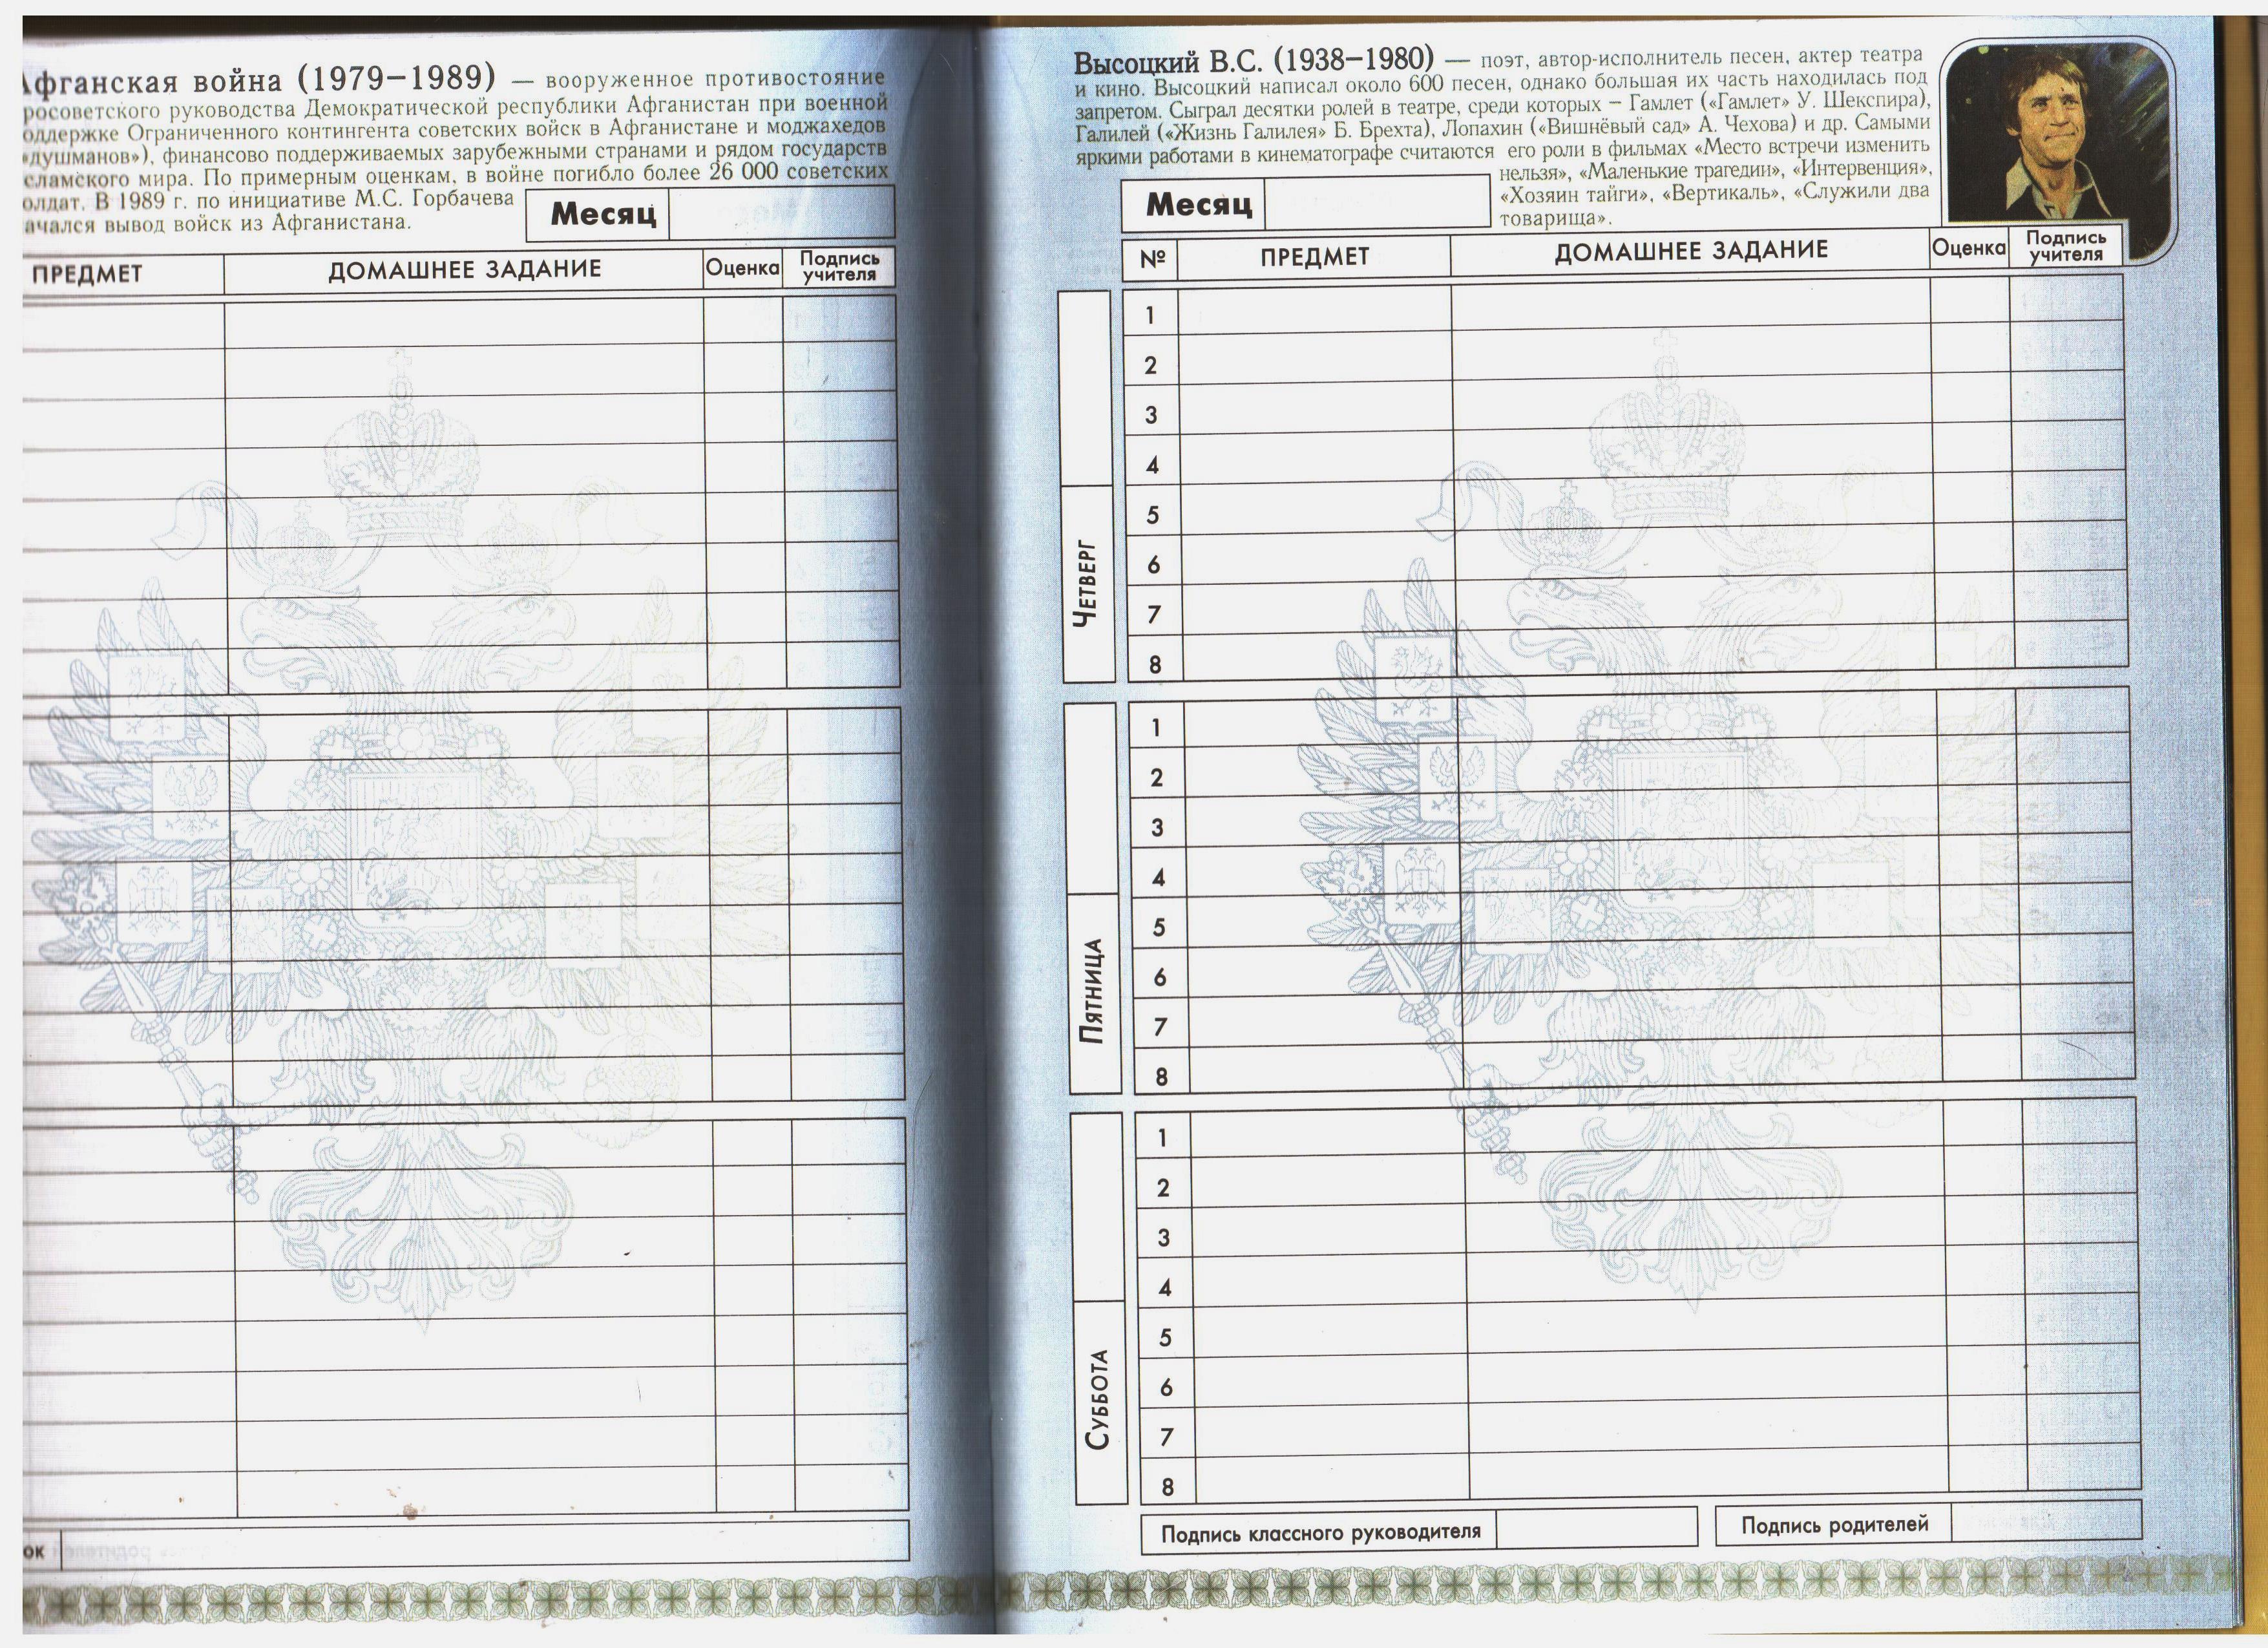 Афганская война (1979–1989) — вооруженное противостояние
росоветского руководства Демократической республики Афганистан при военной
оддержке Ограниченного контингента советских войск в Афганистане и моджахедов
«душманов»), финансово поддерживаемых зарубежными странами и рядом государств
сламского мира. По примерным оценкам, в войне погибло более 26 000 советских
олдат. В 1989 г. по инициативе М.С. Горбачева
ачался вывод войск из Афганистана.
Месяц
ПРЕДМЕТ ДОМАШНЕЕ ЗАДАНИЕ Оценка Подпись учителя
ок
Высоцкий В.С. (1938–1980) — поэт, автор-исполнитель песен, актер театра
и кино. Высоцкий написал около 600 песен, однако большая их часть находилась под
запретом. Сыграл десятки ролей в театре, среди которых – Гамлет («Гамлет» У. Шекспира),
Галилей («Жизнь Галилея» Б. Брехта), Лопахин («Вишнёвый сад» А. Чехова) и др. Самыми
яркими работами в кинематографе считаются его роли в фильмах «Место встречи изменить
нельзя», «Маленькие трагедии», «Интервенция»,
«Хозяин тайги», «Вертикаль», «Служили два
товарища».
Месяц
№ ПРЕДМЕТ ДОМАШНЕЕ ЗАДАНИЕ Оценка Подпись учителя
ЧЕТВЕРГ
1
2
3
4
5
6
7
8
ПЯТНИЦА
1
2
3
4
5
6
7
8
СУББОТА
1
2
3
4
5
6
7
8
Подпись классного руководителя Подпись родителей